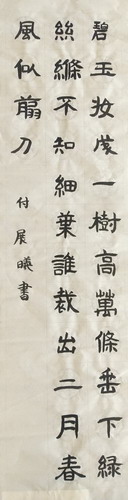 碧玉妝成一樹高萬條垂下綠
絲絛不知細葉誰裁出二月春
風似剪刀
付展曦書